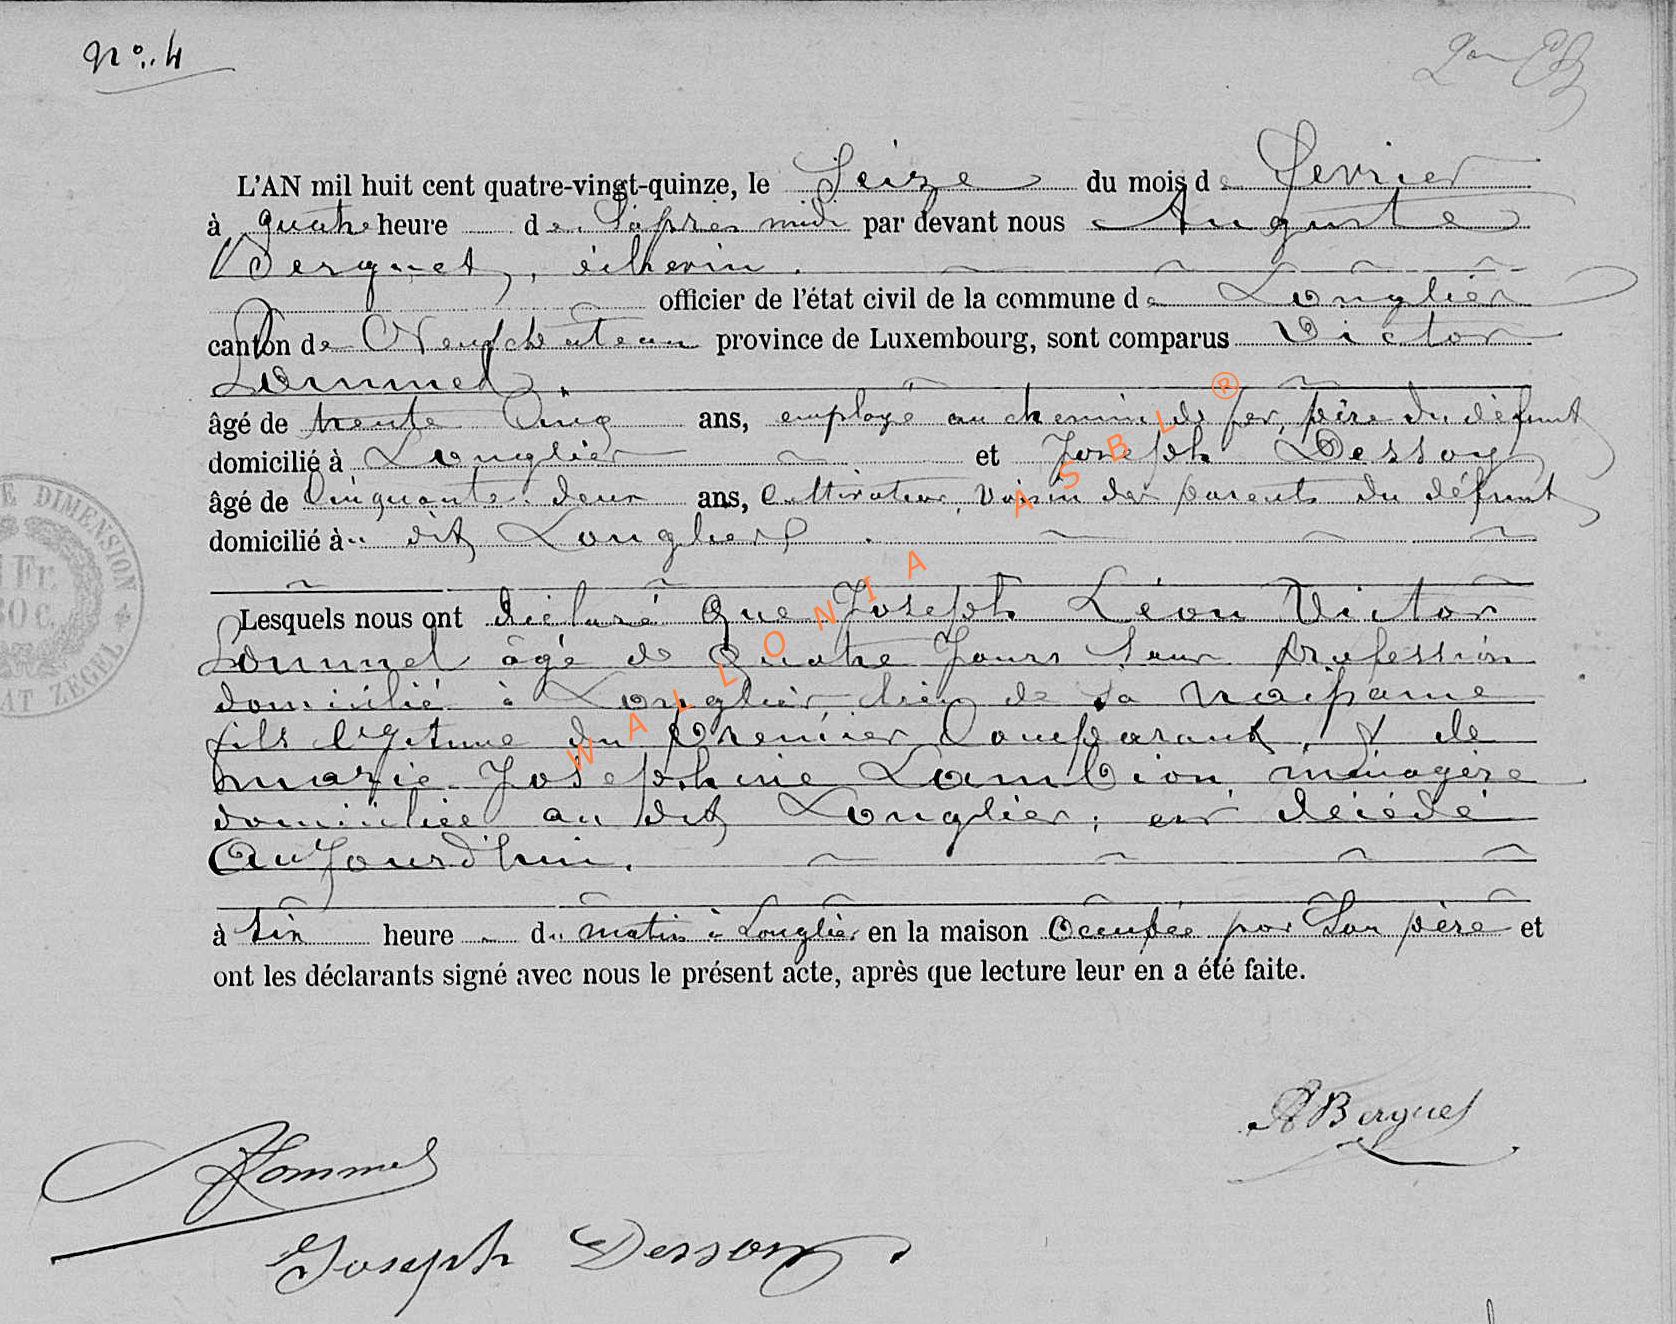 N° 4
L'AN mil huit cent quatre-vingt-quinze, le Seize du mois de Fevrier
à quatre heure de l'après midi par devant nous Auguste
Berquet, échevin.
officier de l'état civil de la commune de Longlier
canton de Neufchateau province de Luxembourg, sont comparus Victor
Lommel.
âgé de trente Cinq ans, employé au chemin de fer, père du défunt
domicilié à Longlier et Joseph Dessoy
âgé de Cinquante deux ans, Cultivateur, voisin des parents du défunt
domicilié au dit Longlier
Lesquels nous ont déclaré Que Joseph Léon Victor
Lommel âgé de Quatre Jours Sans Profession
domicilié à Longlier lieu de sa naissance
fils légitime du Premier Comparant, & de
marie Joséphine Lambion, ménagère
domiciliée au dit Longlier, est décédé
Aujourd'hui.
à six heure du matin à Longlier en la maison Occupée par Son père et
ont les déclarants signé avec nous le présent acte, après que lecture leur en a été faite.
ABerquet
Lommel
Joseph Dessoy
E DIMENSION
1 Fr.
30 c.
AT ZEGEL
WALLONIA ASBL ®